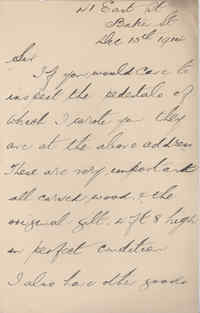 41 East St
Baker St
Dec 15th 1914
Sir
If you would care to
inspect the pedestals of
which I wrote you they
are at the above address
These are very important
all carved wood & the
original gilt 4 ft 8 high
in perfect condition
I also have other goods